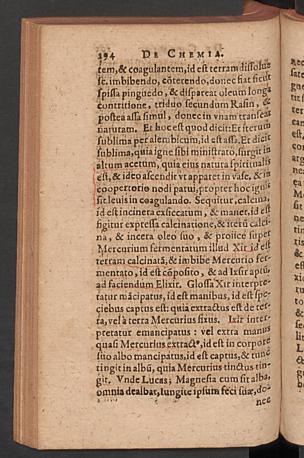 394 DE CHEMIA.
tem, & coagulantem, id est terram dissolue
se, imbibendo, cōterendo, donec fiat sicut
spissa pinguedo, & dispareat oleum longa
contritione, triduo secundum Rasin, &
postea assa simul, donec in vnam transeat
naturam. Et hoc est quod dicit: Et iterum
sublima per alembicum, id est assa. Et dicit
sublima, quia igne sibi ministrato, surgit in
altum acetum, quia eius natura spiritualis
est, & ideo ascendit vt appareat in vase, & in
coopertorio nodi patui, propter hoc ignis
sit leuis in coagulando. Sequitur, calcina,
id est incinera exsiccatum, & manet, id est
figitur expressa calcinatione, & iterū calci-
na, & incera oleo suo, & proiice super
Mercurium fermentatum illud Xir id est
terram calcinatā, & imbibe Mercurio fer-
mentato, id est cōposito, & ad Ixsir aptū,
ad faciendum Elixir. Glossa Xir interpre-
tatur mācipatus, id est manibus, id est spe-
ciebus captus est: quia extractus est de ter-
ra, vel à terra Mercurius fixus. Ixir inter-
pretatur emancipatus: vel extra manus
quasi Mercurius extract9, id est in corpore
suo albo mancipatus, id est captus, & tunc
tingit in albū, quia Mercurius tinctus tin-
git. Vnde Lucas; Magnesia cum sit alba,
omnia dealbat, Iungite ipsum feci suæ, do-
nec